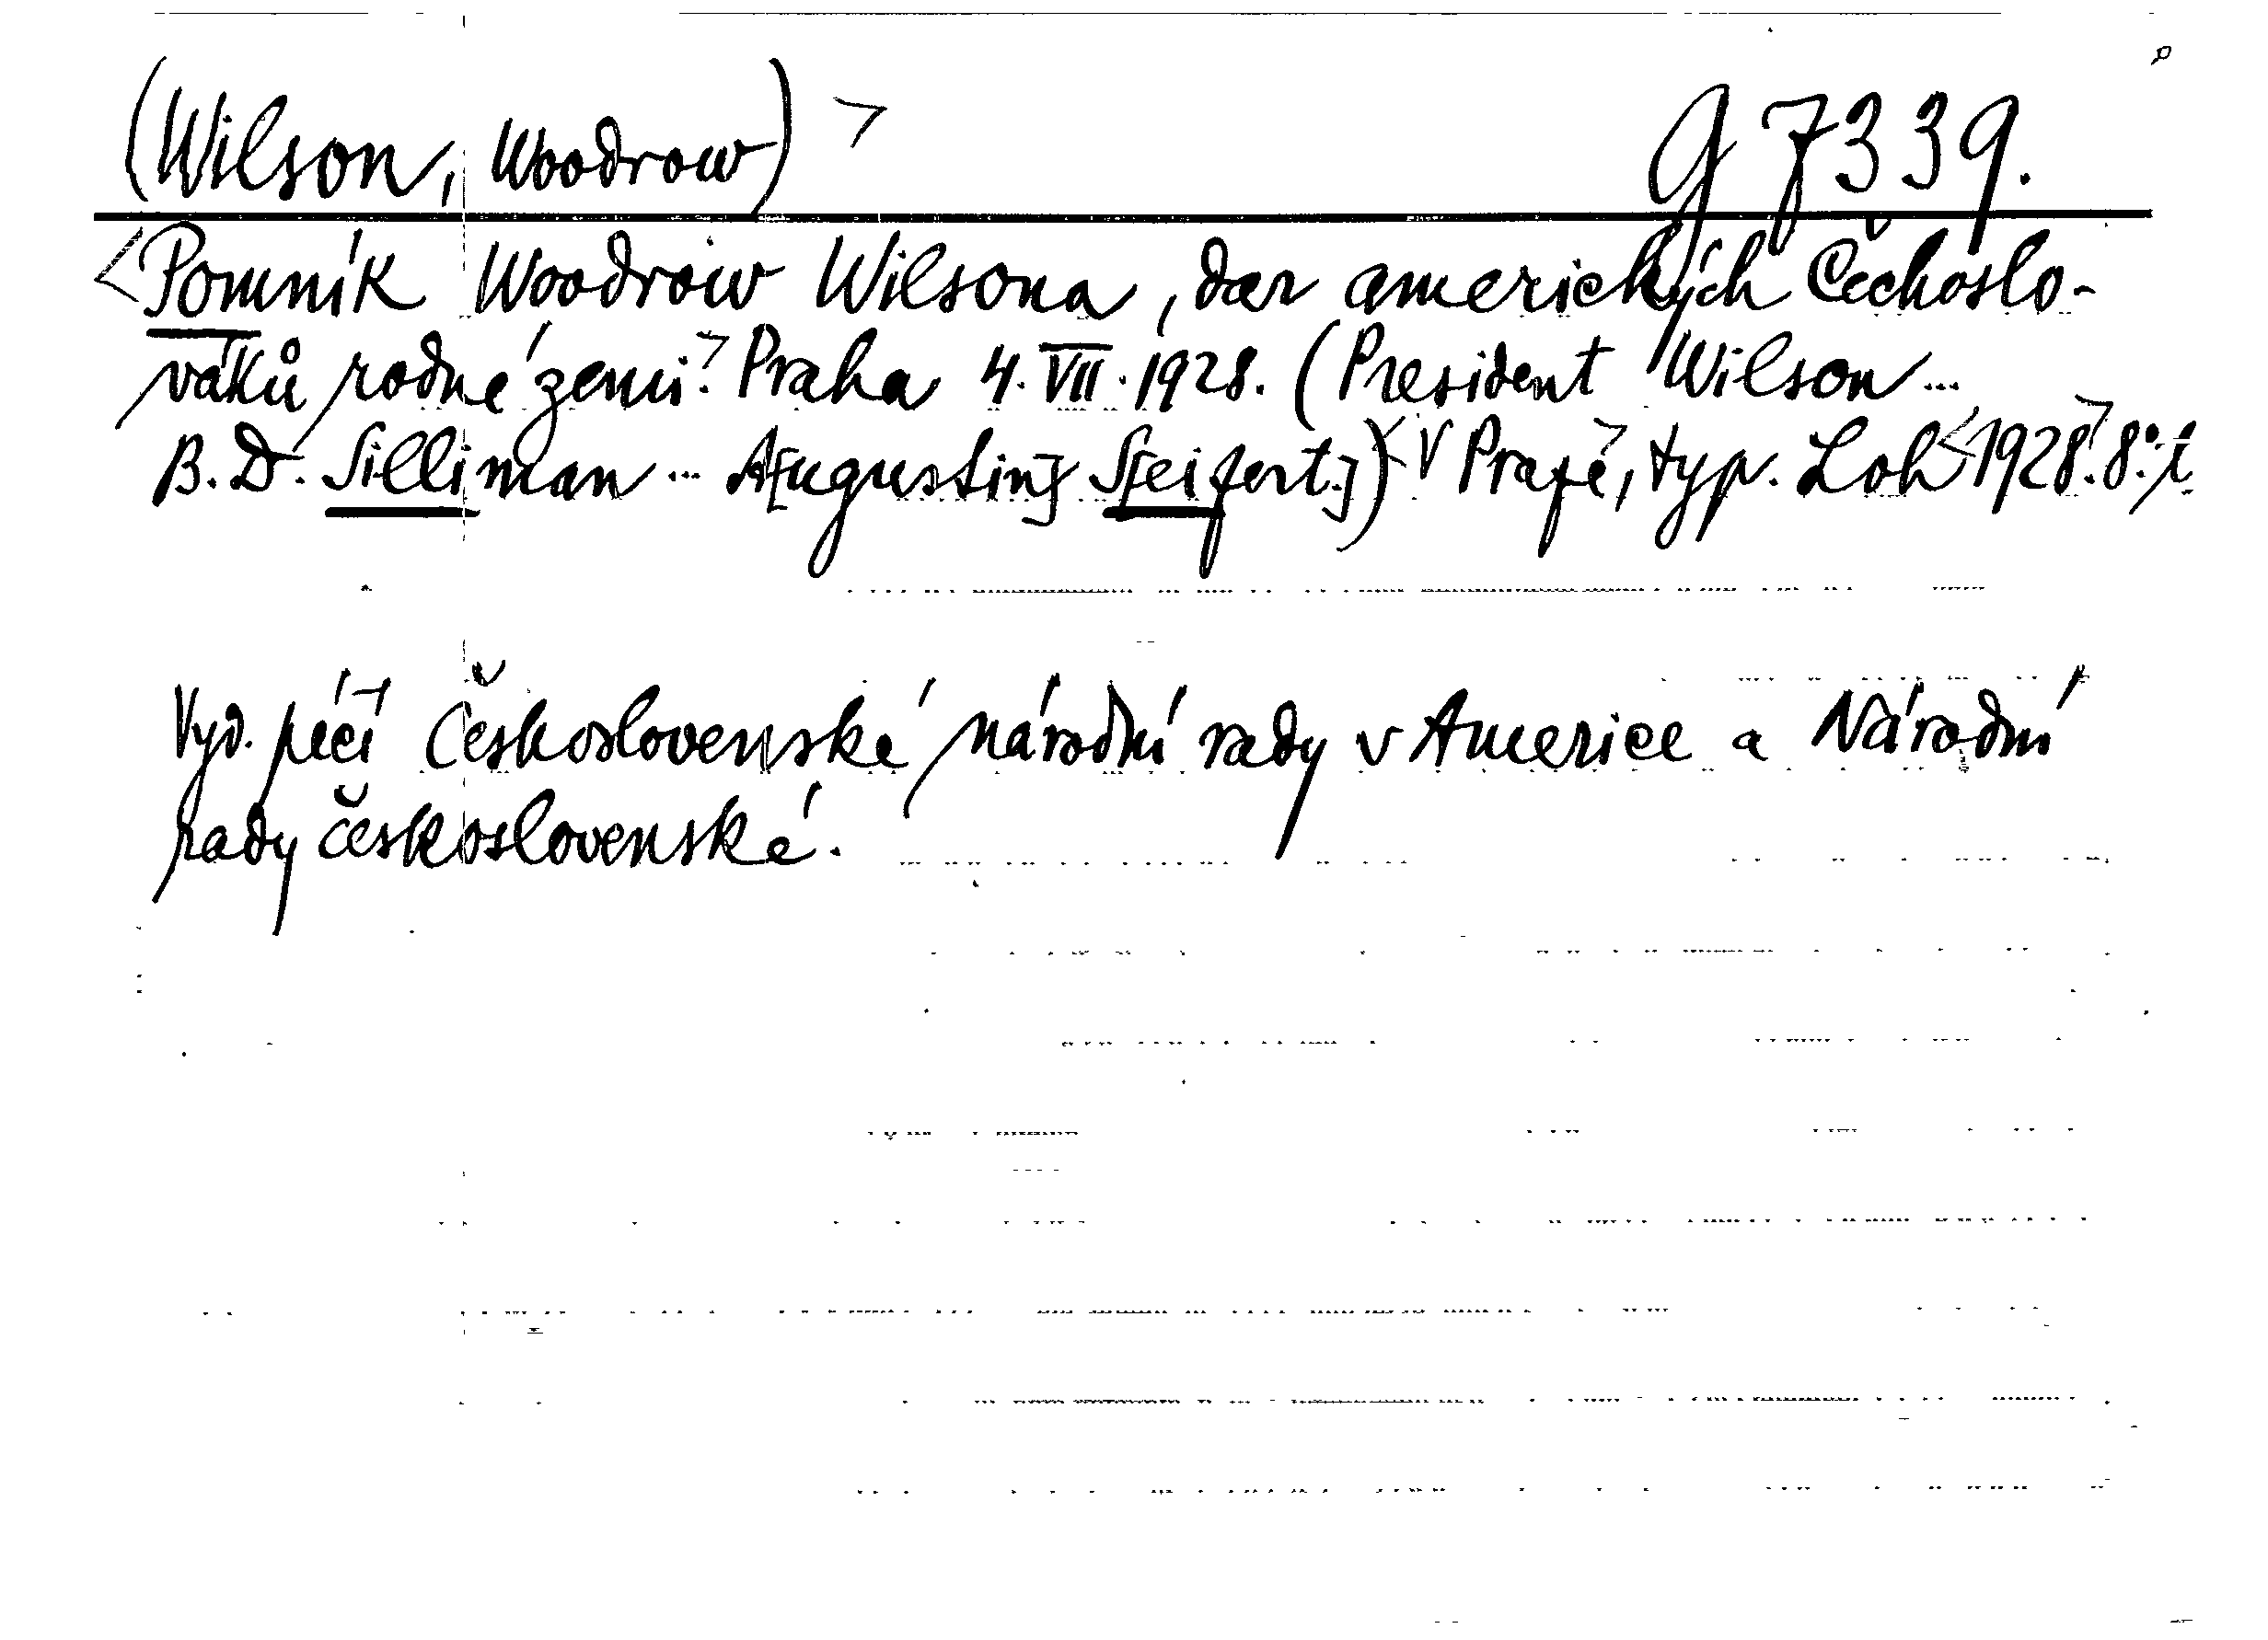 (Wilson, Woodrow) > g 7339.
<Pomník Woodrow Wilsona, dar amerických Čechoslo-
váků rodné zemi.> Praha 4. VII. 1928. (President Wilson...
B. D. Silliman... A[ugustin] S[eifert.]) < V Praze, typ. Loh <1928>. 8°.
Vyd. péčí Československé národní rady v Americe a Národní
rady československé.